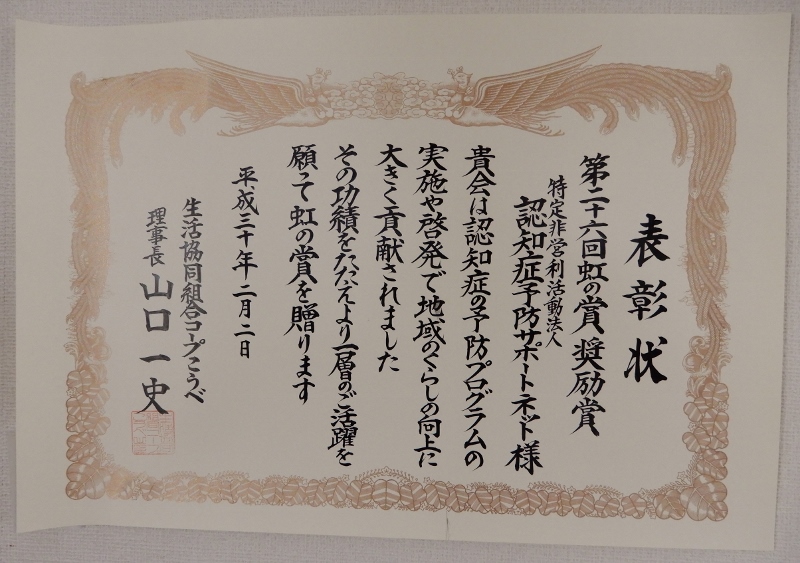 表彰状
第二十六回虹の賞奨励賞
特定非営利活動法人
認知症予防サポートネット様
貴会は認知症の予防プログラムの
実施や啓発で地域のくらしの向上に
大きく貢献されました
その功績をたたえより一層のご活躍を
願って虹の賞を贈ります
平成三十年二月二日
生活協同組合コープこうべ
理事長 山口一史